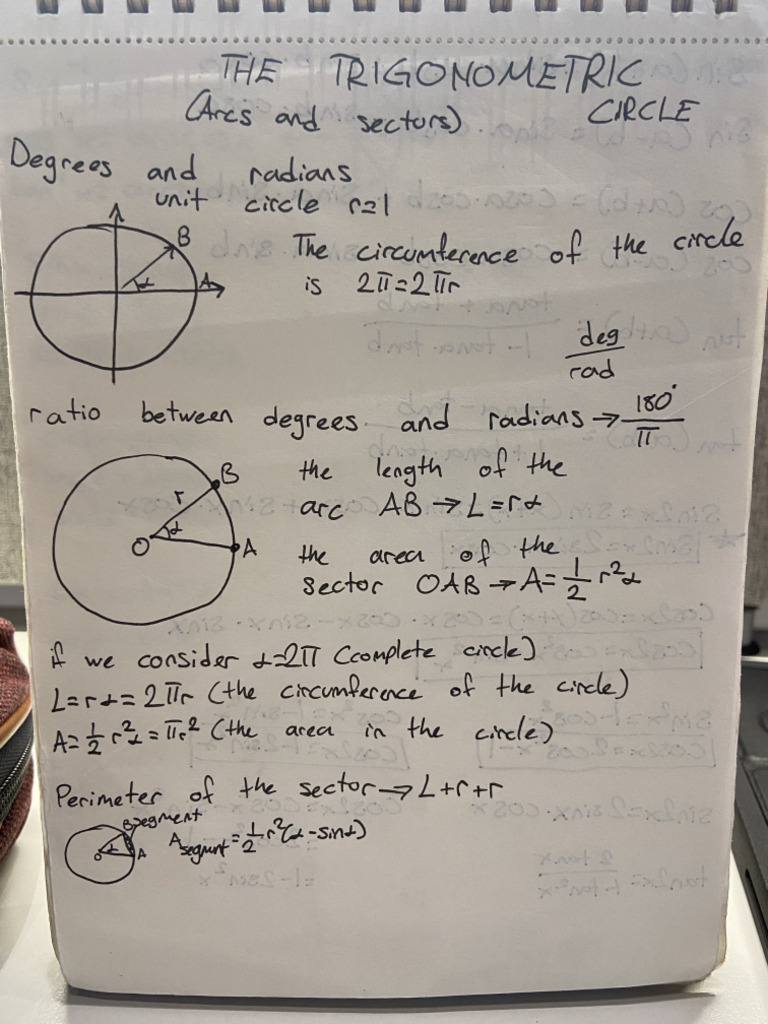 THE TRIGONOMETRIC
(Arcs and sectors) CIRCLE
Degrees and radians
unit circle r=1
B
A
α
The circumference of the circle
is 2π=2πr
deg/rad
ratio between degrees and radians → 180°/π
B
r
α
O
A
the length of the
arc AB → L=rα
the area of the
sector OAB → A=1/2 r²α
if we consider α=2π (complete circle)
L=rα=2πr (the circumference of the circle)
A=1/2 r²α=πr² (the area in the circle)
Perimeter of the sector → L+r+r
B segment
O α A
A segment = 1/2 r²(α-sinα)